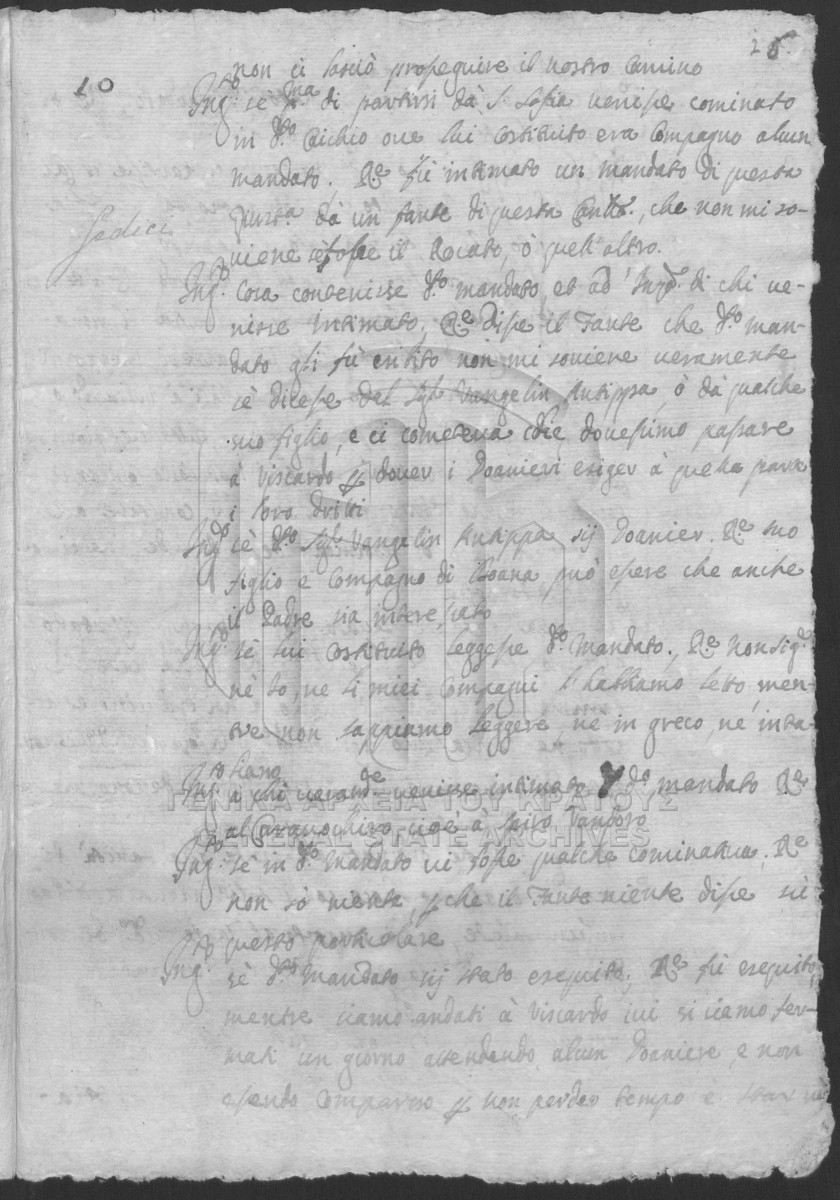 25
10
non ci lasciò proseguire il nostro Camino
Ingto sè pma di partirsi dà S. Sofia venisse cominato
in dto Caichio ove lui Costituito era Compagno alcun
mandato. Re fù intimato un mandato di questa
Sedici
dà un fante di questa, che non mi so-
viene se fosse il Rocato, ò quell'altro.
Ingto Cosa contenisse dto mandato, et ad Inza di chi ve-
nisse intimato, Re disse il Fante che dto man-
dato gli fù non mi soviene veramente
sè dicesse dal Sigr Vangelin Antippa, ò dà qualche
suo figlio, e ci cometteva che dovessimo passare
à Viscardo p dover i Doanieri esiger à quella parte
i loro dritti
Ingto sè dto Sigr Vangelin Antippa sij Doanier. Re suo
figlio e Compagno di Doana, può essere che anche
il Padre sia interessato
Ingto sè lui Costituito leggesse dto mandato, Re Non Sigr
nè Io, ne li miei Compagni l'habbiamo letto men-
tre non sappiamo leggere, nè in greco, nè in ita-
liano
Ingto à chi veramte venisse intimato dto mandato Re
al Caravochiro, cioè à Spiro Vandoro
ΓΕΝΙΚΑ ΑΡΧΕΙΑ ΤΟΥ ΚΡΑΤΟΥΣ
GENERAL STATE ARCHIVES
Ingto sè in dto mandato vi fosse qualche cominativa, Re
non sò niente, pche il Fante niente disse sù
questo particolare
Ingto sè dto mandato sij stato esequito, Re fù esequito,
mentre siamo andati à Viscardo ivi si siamo fer-
mati un giorno attendendo alcun Doaniere, e non
essendo Comparso p non perder tempo e star